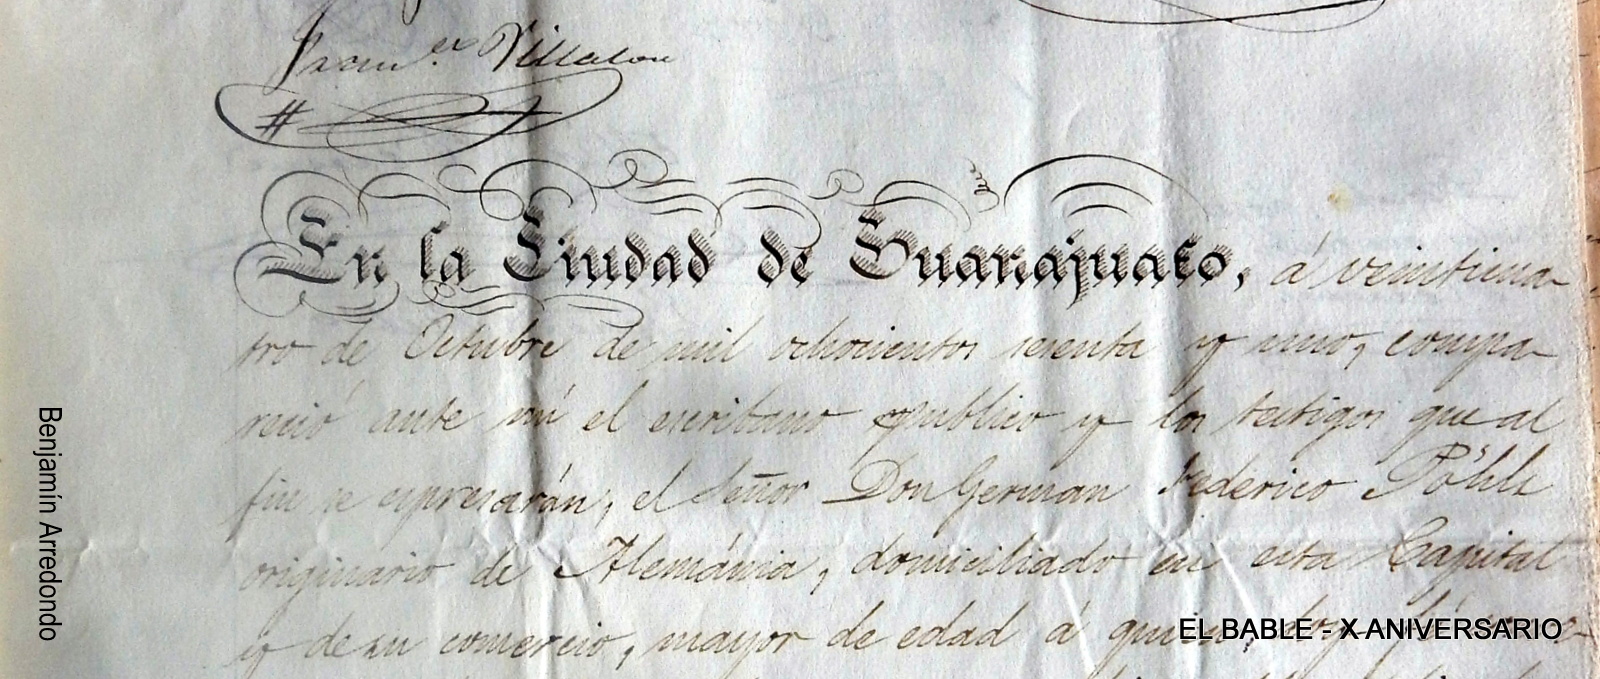 Villalon
En la Ciudad de Guanajuato, á veinticua-
tro de Octubre de mil ochocientos sesenta y uno, compa-
reció ante mí el escribano público y los testigos que al
fin se espresarán, el Señor Don German Federico Pöhls
originario de Alemánia, domiciliado en esta Capital
y de su comercio, mayor de edad á quien doy fé
Benjamín Arredondo
EL BABLE - X ANIVERSARIO